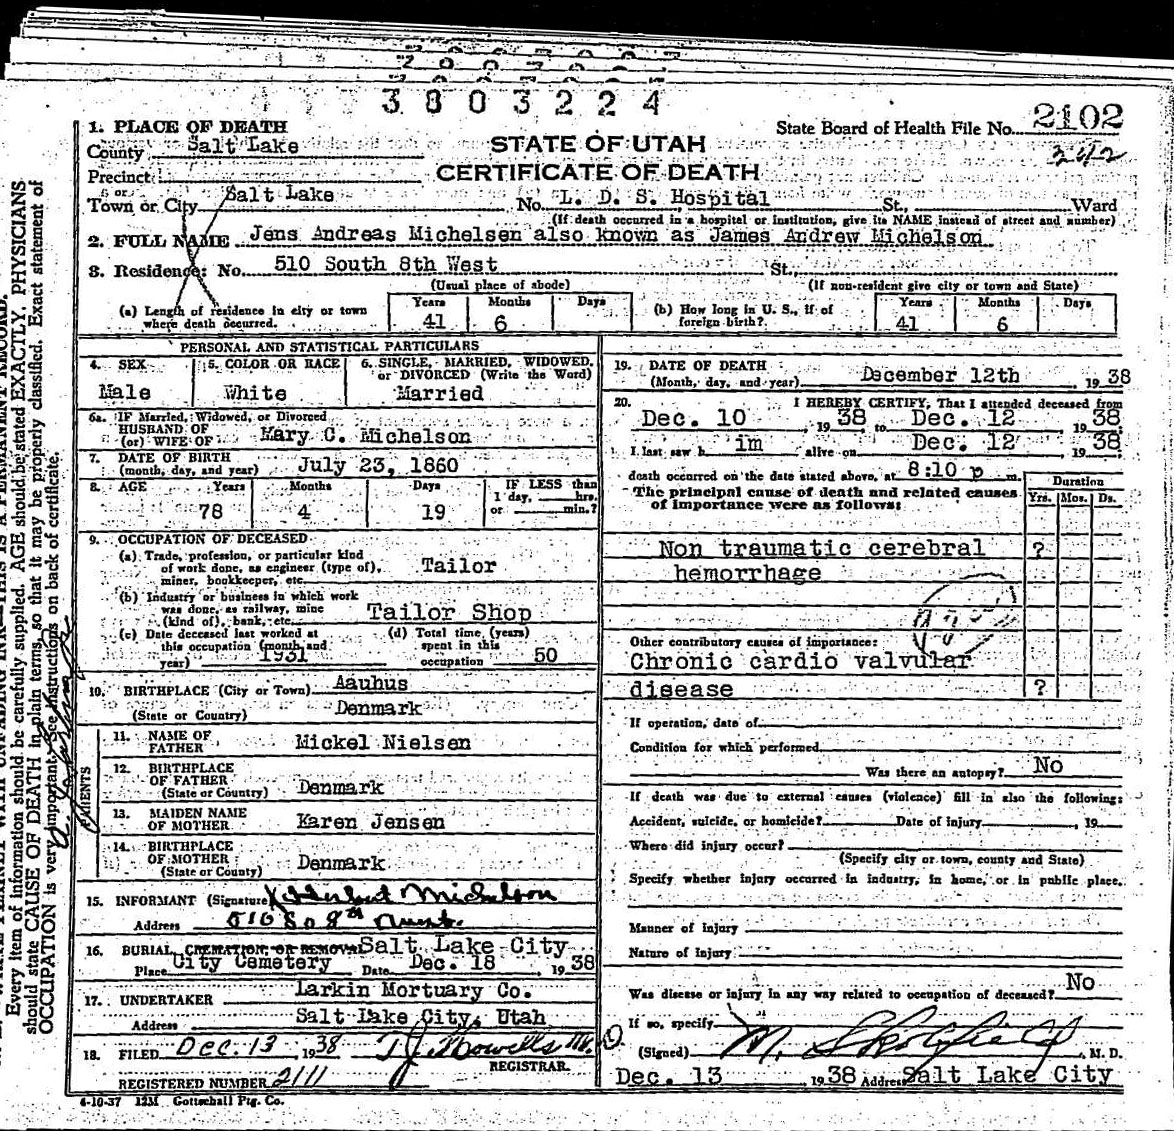 3803224
2102
State Board of Health File No.
242
1. PLACE OF DEATH
County Salt Lake
STATE OF UTAH
CERTIFICATE OF DEATH
Precinct
or
Town or City Salt Lake No. L. D. S. Hospital St., Ward
(If death occurred in a hospital or institution, give its NAME instead of street and number)
2. FULL NAME Jens Andreas Michelsen also known as James Andrew Michelson
3. Residence: No. 510 South 8th West St.,
(Usual place of abode) (If non-resident give city or town and State)
(a) Length of residence in city or town where death occurred. Years 41 Months 6 Days
(b) How long in U. S., if of foreign birth? Years 41 Months 6 Days
PERSONAL AND STATISTICAL PARTICULARS
4. SEX Male
5. COLOR OR RACE White
6. SINGLE, MARRIED, WIDOWED, or DIVORCED (Write the Word) Married
6a. IF Married, Widowed, or Divorced
HUSBAND OF
(or) WIFE OF Mary C. Michelson
7. DATE OF BIRTH
(month, day, and year) July 23, 1860
8. AGE Years 78 Months 4 Days 19 IF LESS than 1 day, hrs. or min.?
9. OCCUPATION OF DECEASED
(a) Trade, profession, or particular kind of work done, as engineer (type of), miner, bookkeeper, etc. Tailor
(b) Industry or business in which work was done, as railway, mine (kind of), bank, etc. Tailor Shop
(c) Date deceased last worked at this occupation (month and year) 1931
(d) Total time (years) spent in this occupation 50
10. BIRTHPLACE (City or Town) Aauhus
(State or Country) Denmark
PARENTS
11. NAME OF FATHER Mickel Nielsen
12. BIRTHPLACE OF FATHER (State or Country) Denmark
13. MAIDEN NAME OF MOTHER Karen Jensen
14. BIRTHPLACE OF MOTHER (State or Country) Denmark
15. INFORMANT (Signature) Herbert Michelson
Address 510 So 8th West.
16. BURIAL CREMATION, OR REMOVAL Salt Lake City
Place City Cemetery Date Dec. 18, 1938
17. UNDERTAKER Larkin Mortuary Co.
Address Salt Lake City, Utah
18. FILED Dec. 13, 1938 T J Howells
REGISTRAR.
REGISTERED NUMBER 2111
4-10-37 12M Gottschall Ptg. Co.
19. DATE OF DEATH
(Month, day, and year) December 12th, 1938
20. I HEREBY CERTIFY, That I attended deceased from
Dec. 10, 1938 to Dec. 12, 1938
I last saw h im alive on Dec. 12, 1938
death occurred on the date stated above, at 8:10 p m.
The principal cause of death and related causes of importance were as follows:
Duration
Yrs. Mos. Ds.
Non traumatic cerebral ?
hemorrhage
Other contributory causes of importance:
Chronic cardio valvular
disease ?
If operation, date of
Condition for which performed
Was there an autopsy? No
If death was due to external causes (violence) fill in also the following:
Accident, suicide, or homicide? Date of injury, 19
Where did injury occur?
(Specify city or town, county and State)
Specify whether injury occurred in industry, in home, or in public place.
Manner of injury
Nature of injury
Was disease or injury in any way related to occupation of deceased? No
If so, specify
(Signed) M. Skolfield, M. D.
Dec. 13 1938 Address Salt Lake City
Every item of information should be carefully supplied. AGE should be stated EXACTLY. PHYSICIANS
should state CAUSE OF DEATH in plain terms, so that it may be properly classified. Exact statement of
OCCUPATION is very important. See instructions on back of certificate.